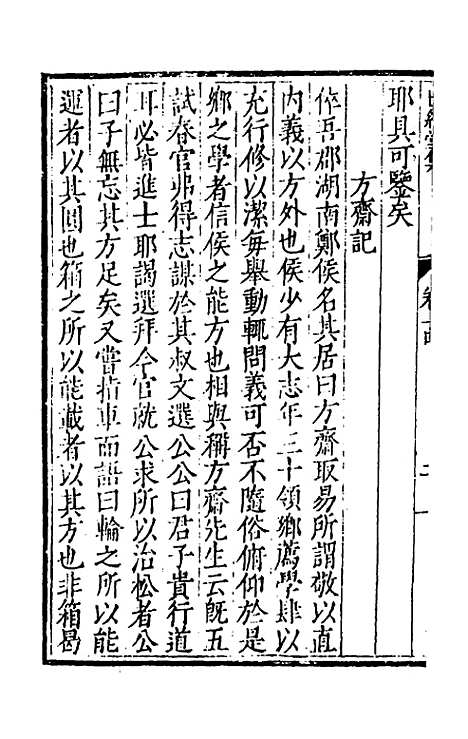 耶具可鑒矣
方齋記
倅吾郡湖南鄭侯名其居曰方齋取易所謂敬以直
内義以方外也侯少有大志年三十領鄉薦學肆以
充行修以潔每舉動輒問義可否不隨俗俯仰於是
鄉之學者信侯之能方也相與稱方齋先生云旣五
試春官弗得志謀於其叔文選公公曰君子貴行道
耳必皆進士耶謁選拜今官就公求所以治松者公
曰子無忘其方足矣又嘗指車而語曰輪之所以能
運者以其圓也箱之所以能載者以其方也非箱曷